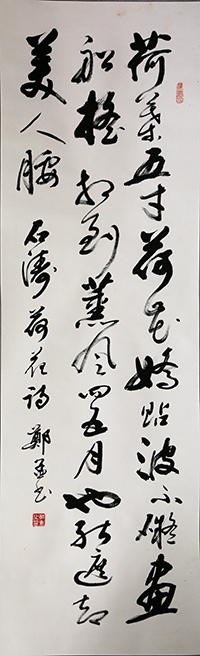 荷葉五寸荷花嬌貼波不礙畫
船搖相到薰風四五月也能遮却
美人腰
石濤荷花詩 鄭書